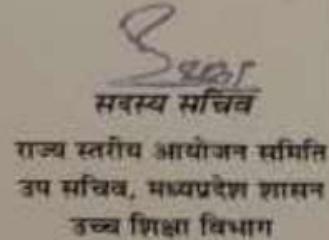 सदस्य सचिव
राज्य स्तरीय आयोजन समिति
उप सचिव, मध्यप्रदेश शासन
उच्च शिक्षा विभाग